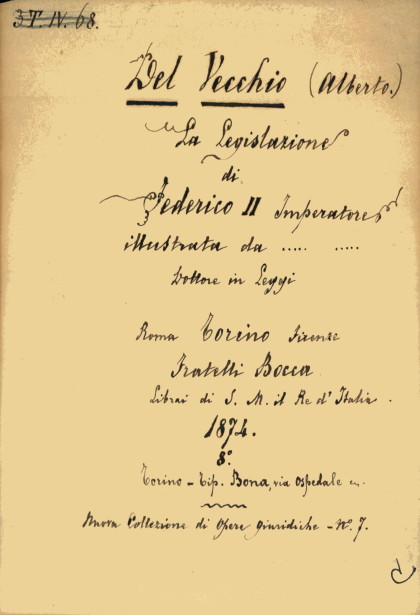 3 T. IV. 68.
Del Vecchio (Alberto.)
La Legislazione
di
Federico II Imperatore
illustrata da ..... .....
Dottore in Leggi
Roma Torino Firenze
Fratelli Bocca
Librai di S. M. il Re d'Italia.
1874.
8º.
Torino - Tip. Bona, via Ospedale
Nuova Collezione di Opere Giuridiche - Nº. 7.